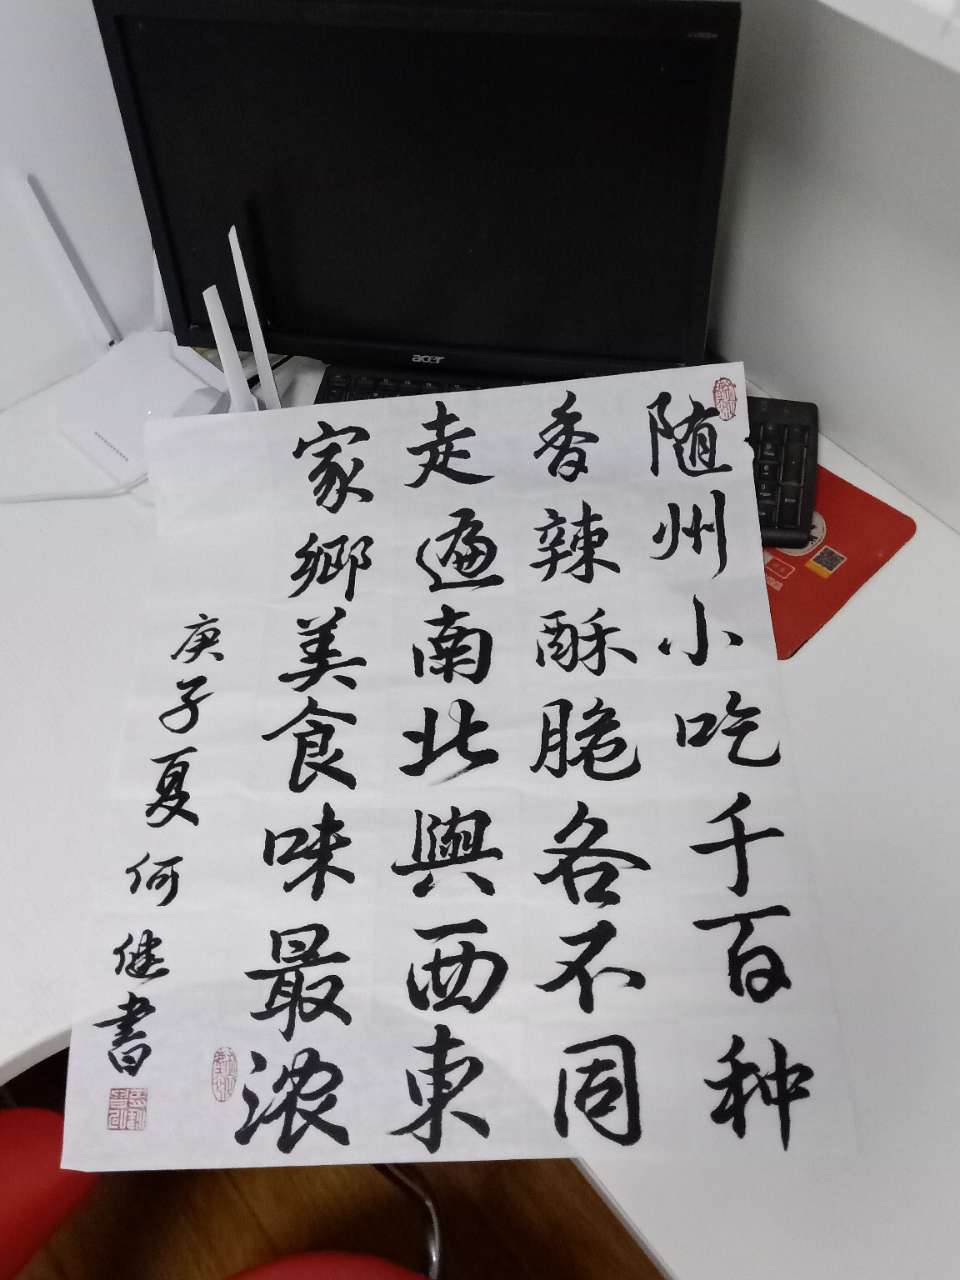 随州小吃千百种
香辣酥脆各不同
走遍南北與西東
家鄉美食味最浓
庚子夏何健書
acer